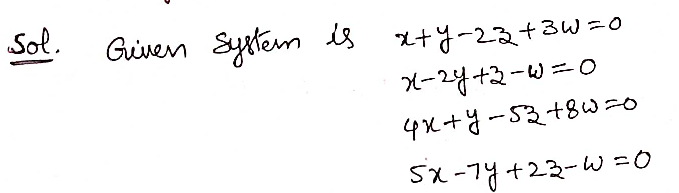 Sol. Given System is x+y-2z+3w=0
x-2y+z-w=0
4x+y-5z+8w=0
5x-7y+2z-w=0